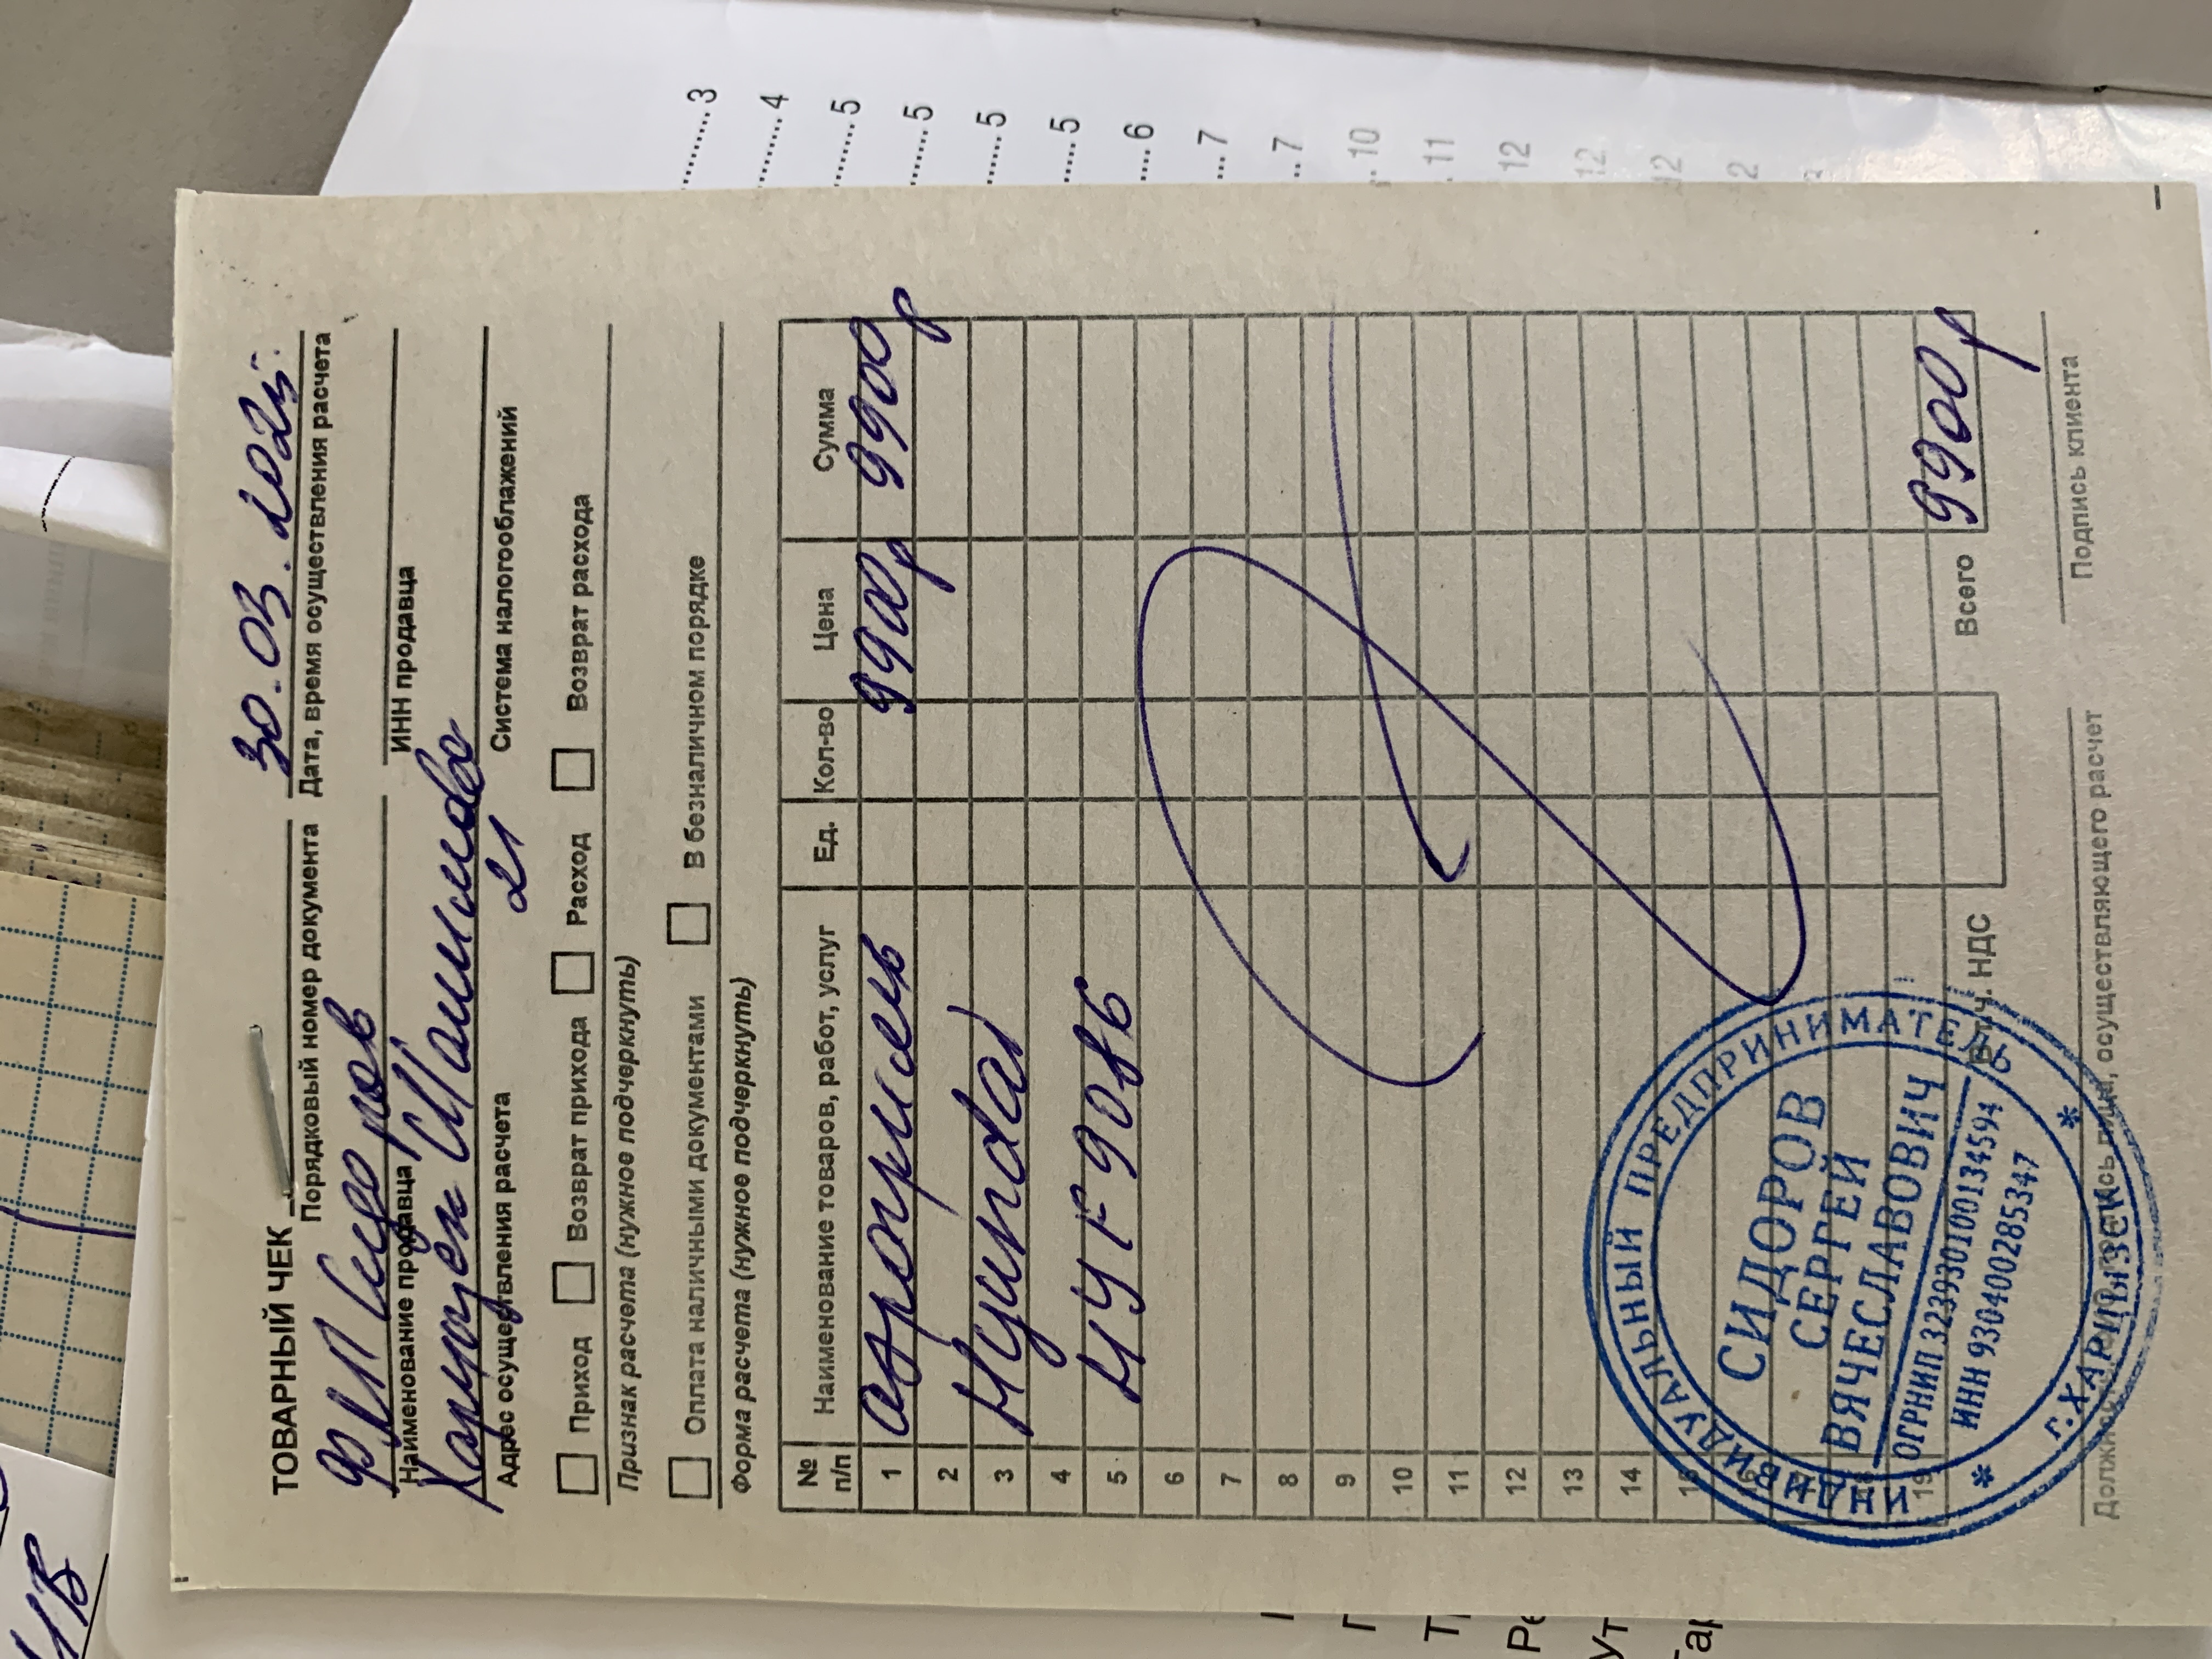 ТОВАРНЫЙ ЧЕК
30.03.2025
Порядковый номер документа Дата, время осуществления расчета
ФЛП Сидоров
Наименование продавца ИНН продавца
Харцызск Шашилова
21
Адрес осуществления расчета Система налогооблажений
Приход Возврат прихода Расход Возврат расхода
Признак расчета (нужное подчеркнуть)
Оплата наличными документами В безналичном порядке
Форма расчета (нужное подчеркнуть)
№ п/п Наименование товаров, работ, услуг Ед. Кол-во Цена Сумма
1 аэрогриль 9900р 9900р
2
3 Hyundai
4
5
HYF 9086
6
7
8
9
10
11
12
13
14
15
19
В т.ч. НДС Всего 9900р
Должность, подпись лица, осуществляющего расчет Подпись клиента
ИНДИВИДУАЛЬНЫЙ ПРЕДПРИНИМАТЕЛЬ
СИДОРОВ
СЕРГЕЙ
ВЯЧЕСЛАВОВИЧ
ОГРНИП 323930100134594
ИНН 930400285347
* г.ХАРЦЫЗСК *
..........3
.........4
........5
.......5
......5
.....5
....6
...7
..7
.10
.11
12
12
12
2